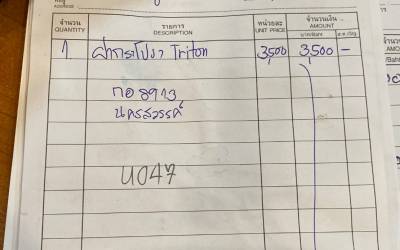 ที่อยู่
ADDRESS
จำนวน รายการ หน่วยละ จำนวนเงิน
QUANTITY DESCRIPTION UNIT PRICE AMOUNT
บาท/Baht ส.ต./Stg.
1. ฝากระโปงา Triton 3,500 3,500 -
กอ 8913
นครสวรรค์
4047